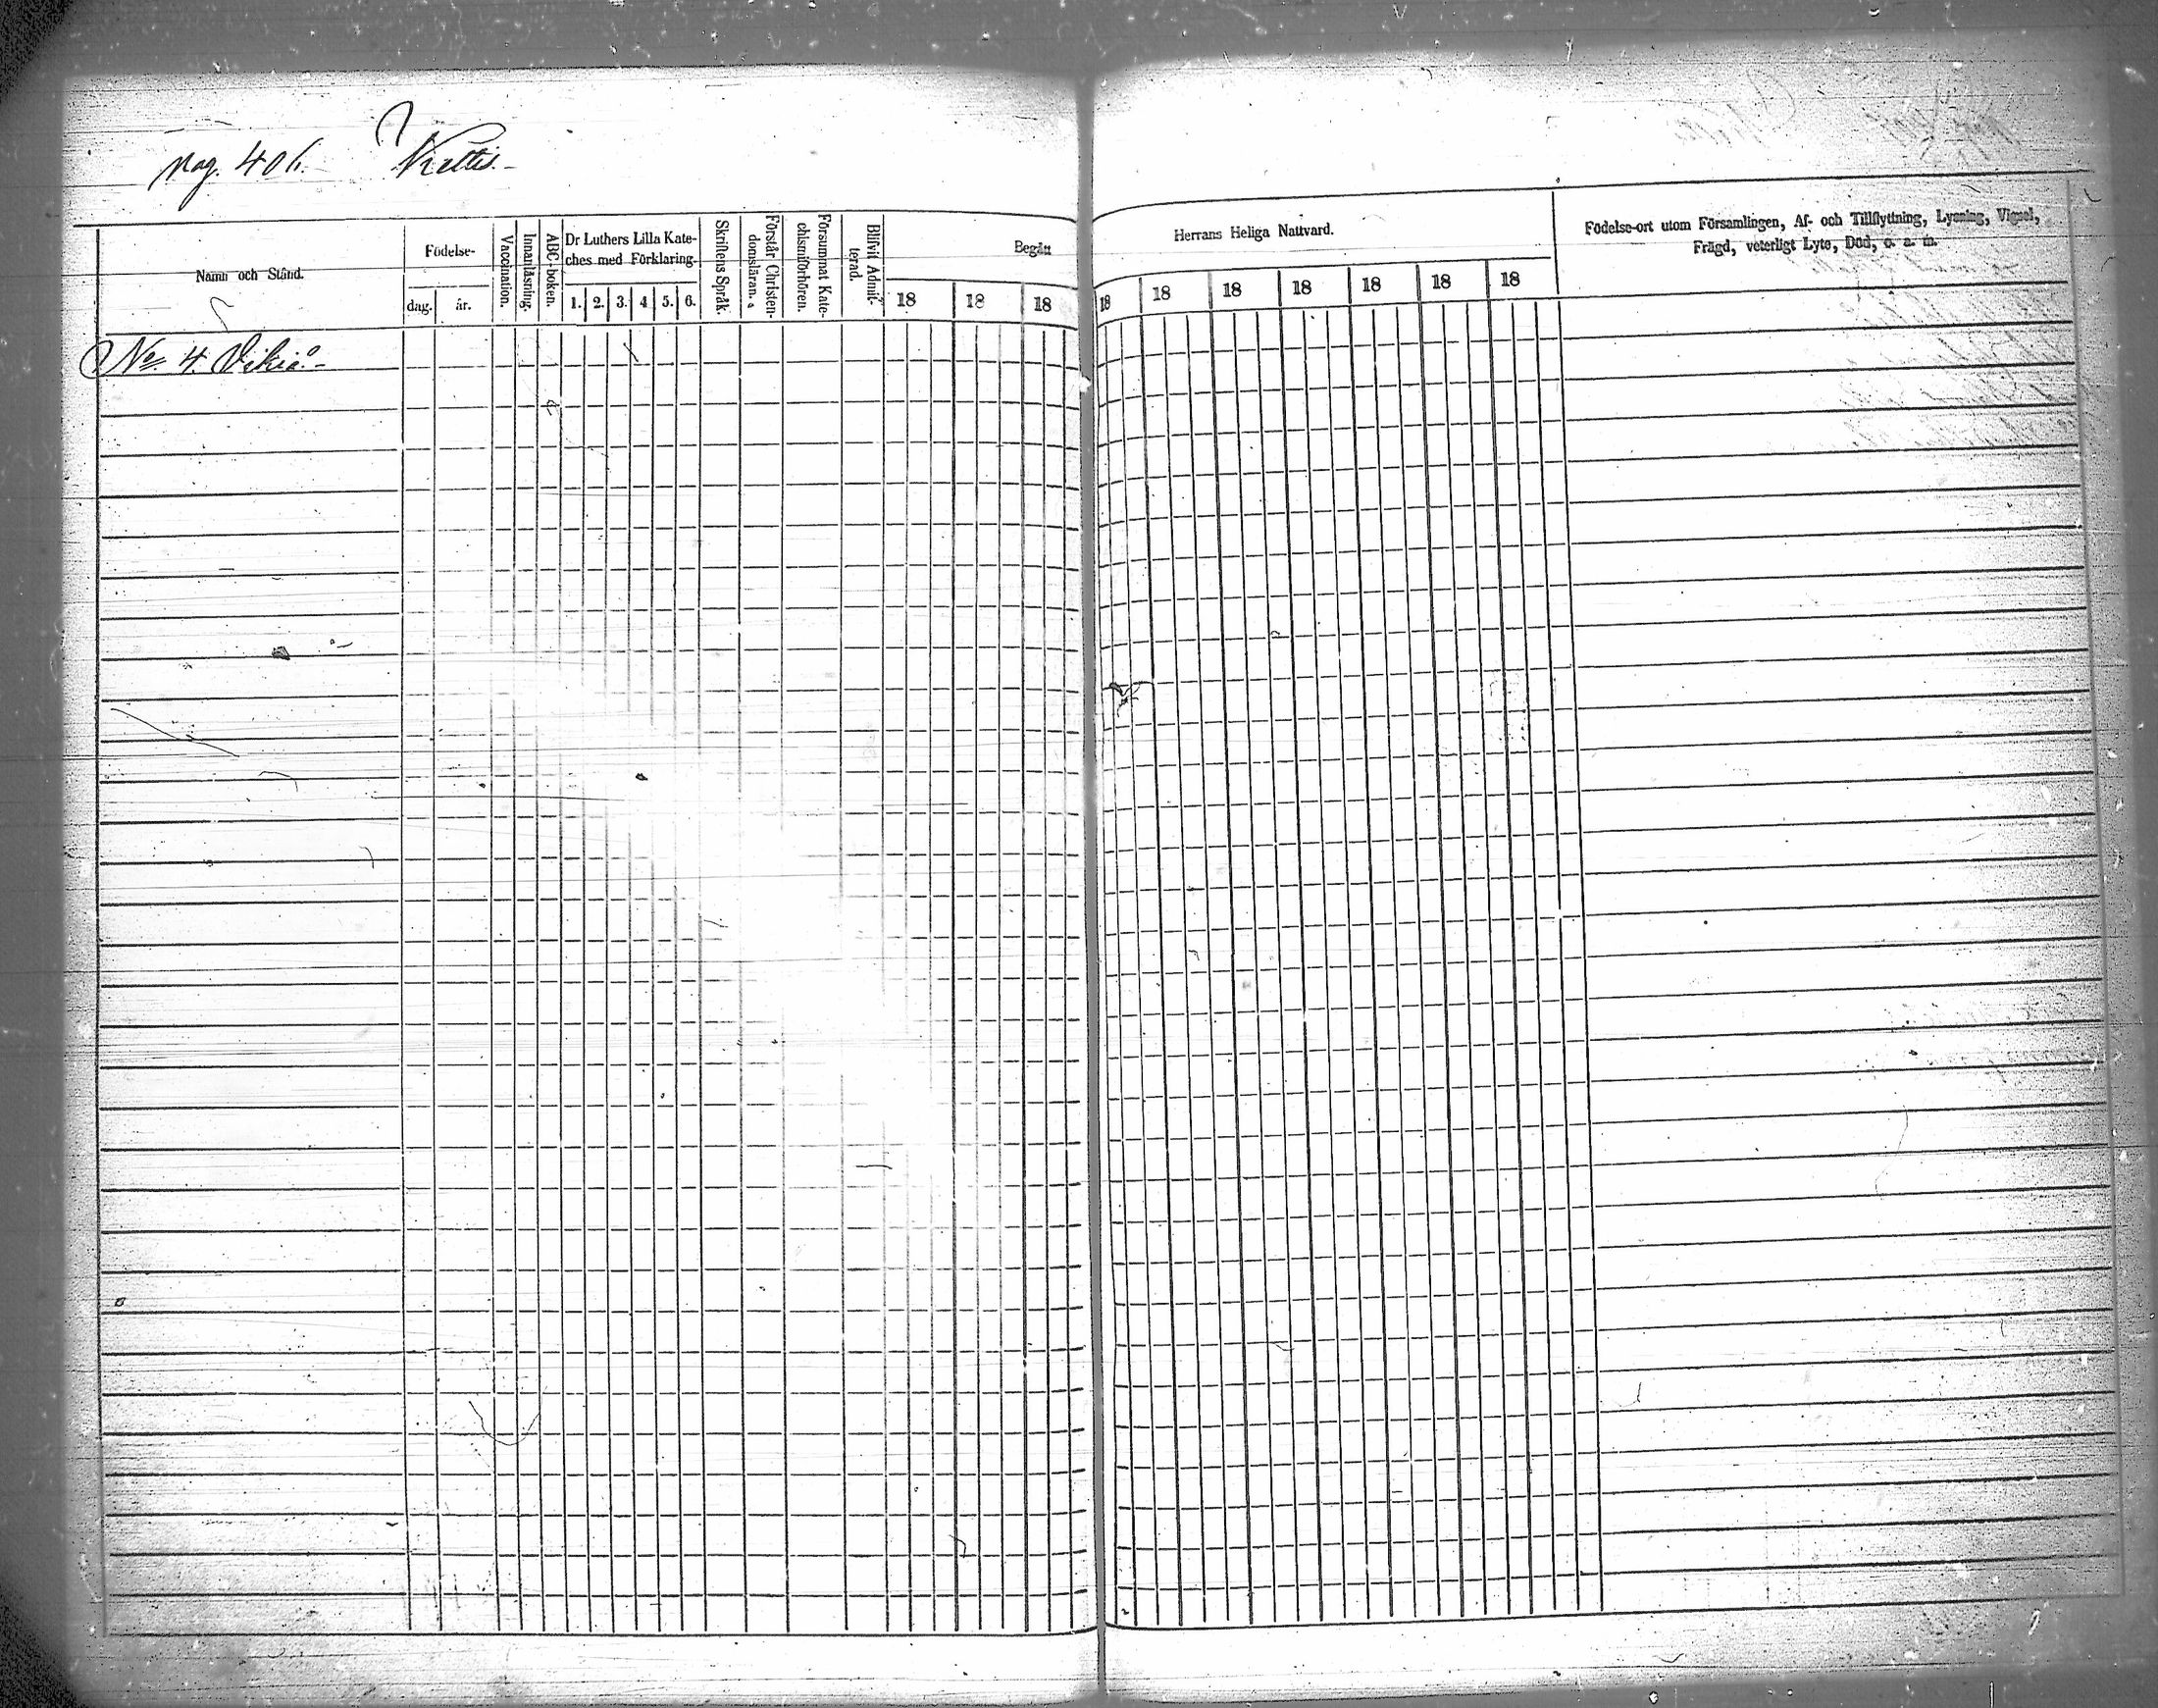 pag. 406. Kettis.
Namn och Stånd.
Födelse-
dag. år.
Vaccination.
Innanläsning.
ABC-boken.
Dr Luthers Lilla Kate-
ches med Förklaring.
1. 2. 3. 4 5. 6.
Skriftens Språk.
Förstår Christen-
domsläran.
Försummat Kate-
chismiförhören.
Blifvit Admit-
terad.
Begått
18 18 18
Herrans Heliga Nattvard.
18 18 18 18 18 18 18
Födelse-ort utom Församlingen, Af- och Tillflyttning, Lysning, Vigsel,
Frägd, veterligt Lyte, Död, o. a. m.
No 4.